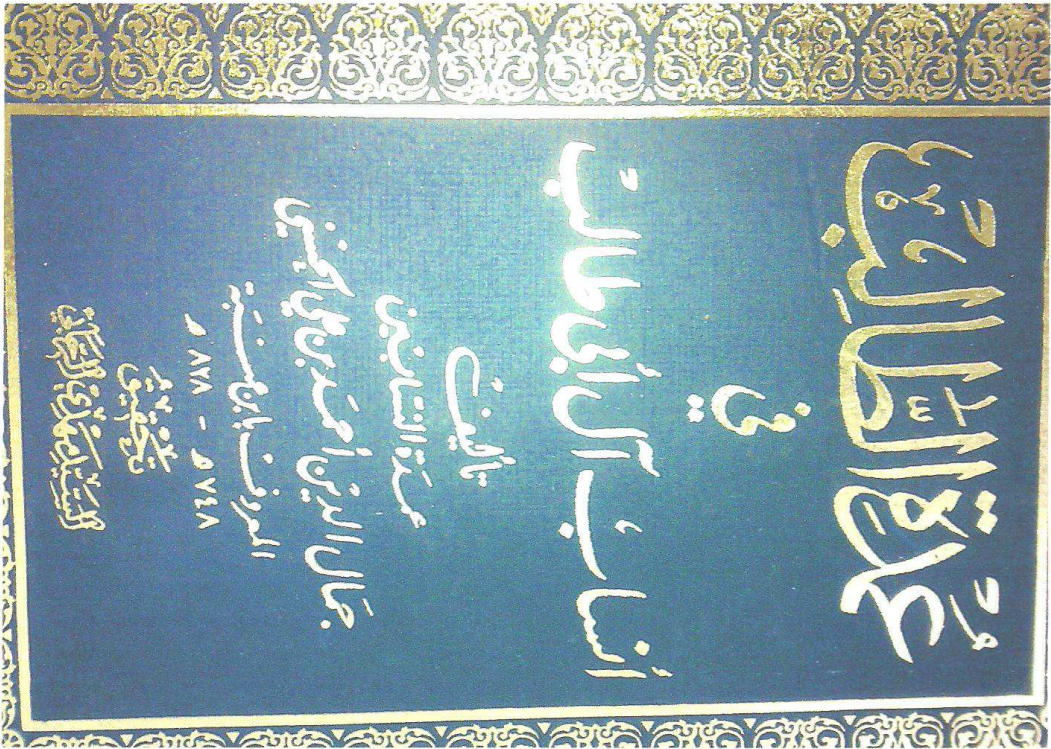 عُمْدَةُ الطَّالِبِ
في
أنساب آل أبي طالب
تأليف
عمدة النسابين
جمال الدين أحمد بن علي الحسني
المعروف بابن عنبة
٧٤٨ ه - ٨٢٨ ه
تحقيق
السيد مهدي الرجائي